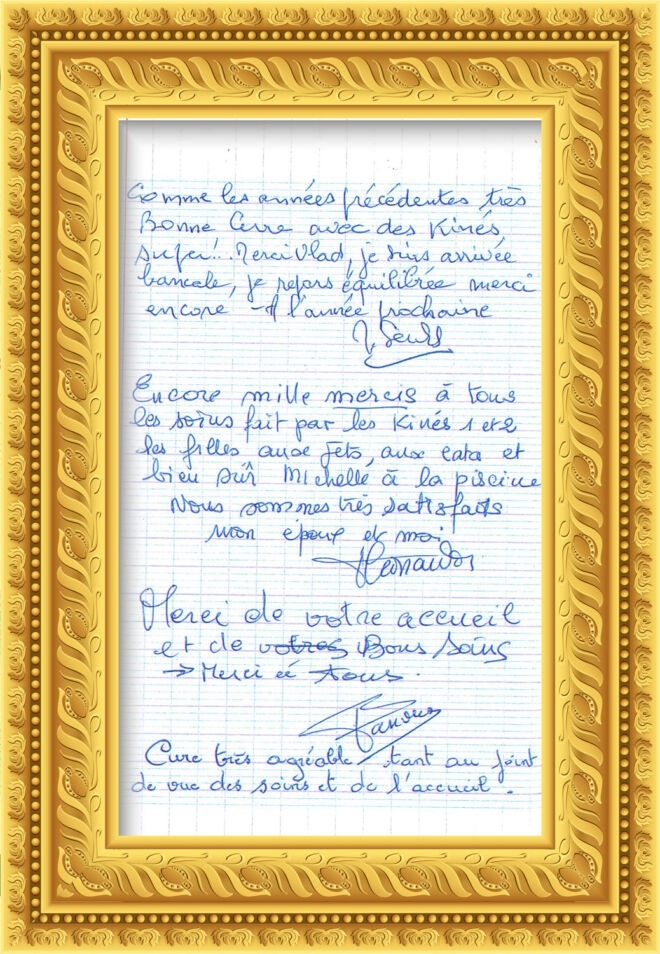 Comme les années précédentes, très
Bonne Cure avec des Kinés
super!.. Merci Vlad, je suis arrivée
bancale, je repars équilibrée merci
encore → A l'année prochaine
Encore mille mercis à tous
les soins fait par les Kinés 1 et 2
les filles aux jets, aux cata et
bien sûr Michelle à la piscine
Nous sommes très satisfaits
mon époux et moi
Merci de votre accueil
et de votres Bons Soins
→ Merci à Tous.
Cure très agréable, tant au point
de vue des soins et de l'accueil.